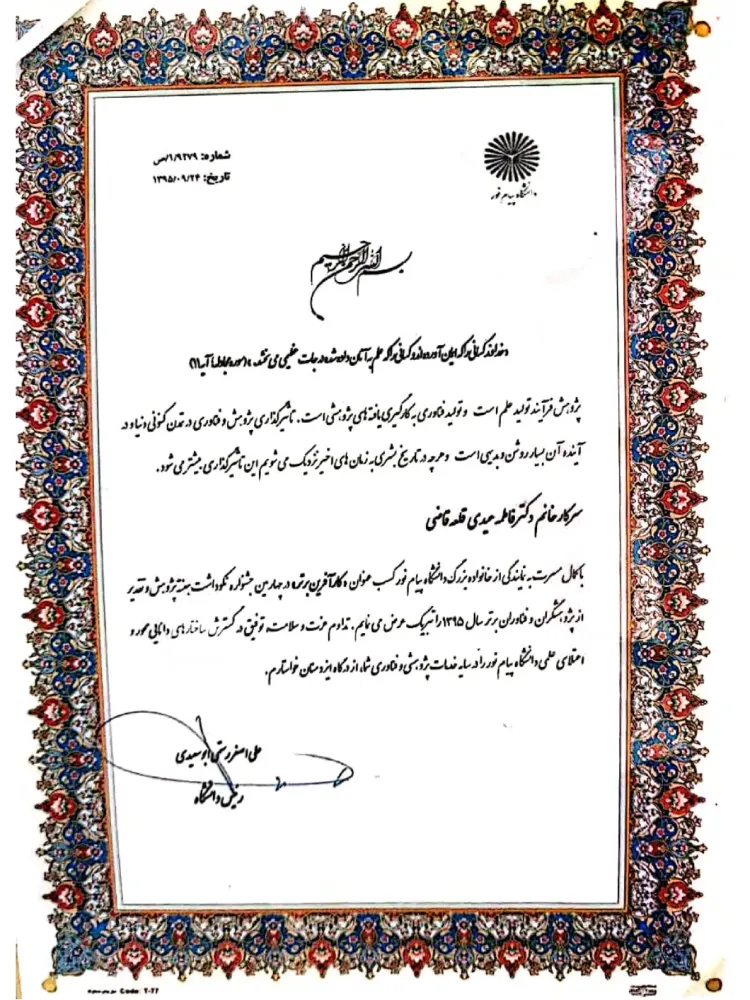 دانشگاه پیام نور
شماره: ۱/۹۲۷۹/ص
تاریخ: ۱۳۹۵/۰۹/۲۴
بسم الله الرحمن الرحیم
«خداوند کسانی را که ایمان آورده‌اند و کسانی را که علم به آنان داده شده درجات عظیمی می بخشد.» (سوره مجادله آیه ۱۱)
پژوهش فرآیند تولید علم است و تولید فناوری به کارگیری یافته های پژوهشی است. تأثیرگذاری پژوهش و فناوری در تمدن کنونی دنیا و در
آینده آن بسیار روشن و بدیهی است و هرچه در تاریخ بشری به زمان های اخیر نزدیک می شویم این تأثیرگذاری بیشتر می شود.
سرکار خانم دکتر فاطمه عیدی قلعه قاضی
با کمال مسرت به نمایندگی از خانواده بزرگ دانشگاه پیام نور کسب عنوان «کارآفرین برتر» در چهارمین جشنواره نکوداشت هفته پژوهش و تقدیر
از پژوهشگران و فناوران برتر سال ۱۳۹۵ را تبریک عرض می نمایم. تداوم عزت و سلامت، توفیق در گسترش ساختارهای دانایی محور و
اعتلای علمی دانشگاه پیام نور را در سایه خدمات پژوهشی و فناوری شما، از درگاه ایزد منان خواستارم.
علی اصغر رستمی ابوسعیدی
رئیس دانشگاه
Code: T-77